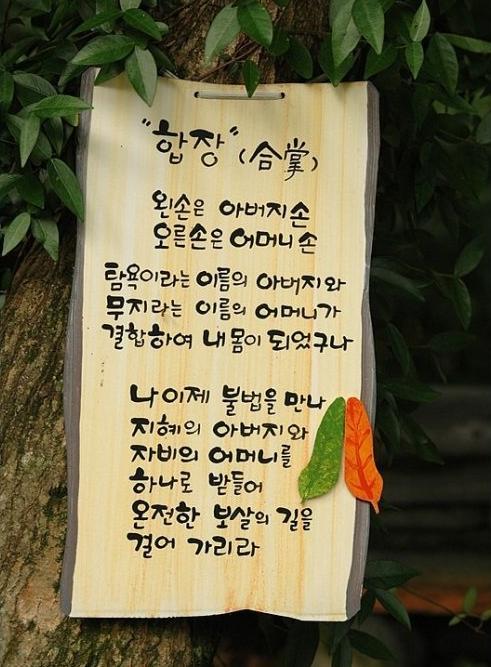 "합장" (合掌)
왼손은 아버지손
오른손은 어머니 손
탐욕이라는 이름의 아버지와
무지라는 이름의 어머니가
결합하여 내 몸이 되었구나
나 이제 불법을 만나
지혜의 아버지와
자비의 어머니를
하나로 받들어
온전한 보살의 길을
걸어 가리라